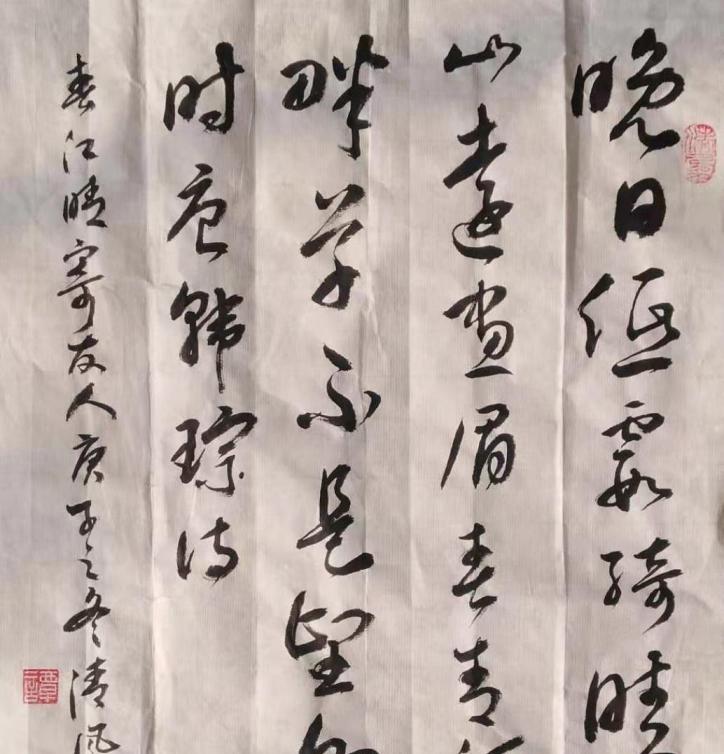 晚日低霞绮晴
山远画眉春青
畔草不是望
时唐韩琮诗
春江晴寄友人庚子之冬清风